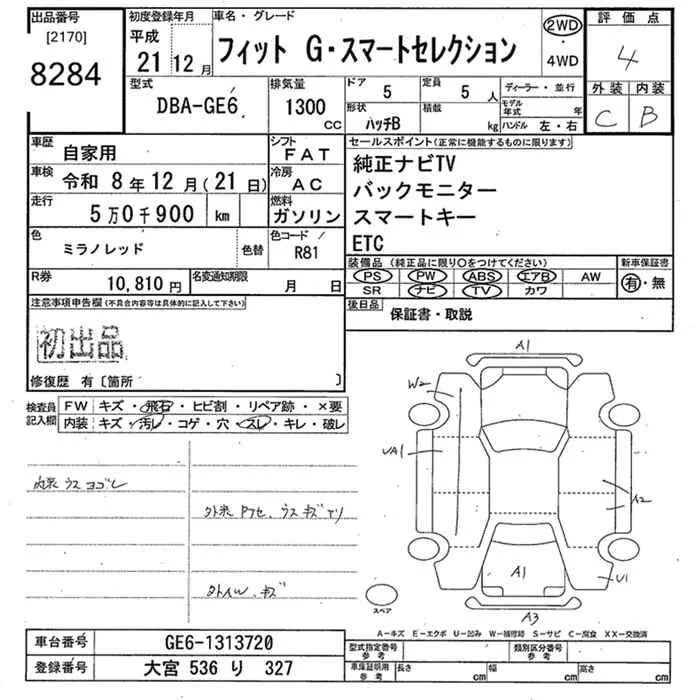 出品番号
[2170]
8284
初度登録年月
平成
21 12 月
車名・グレード
フィット G・スマートセレクション
2WD
・
4WD
評価点
4
外装 内装
C B
型式
DBA-GE6
排気量
1300
CC
ドア
5
定員
5 人
形状
ハッチB
積載
kg
ディーラー・並行
モデル年式 年
ハンドル 左・右
車歴
自家用
シフト
FAT
車検
令和 8 年 12 月 ( 21 日)
冷房
AC
走行
5 万 0 千 900 km
燃料
ガソリン
色
ミラノレッド
色替
色コード
R81
R券
10,810 円
名変通知期限
月 日
セールスポイント(正常に機能するものに限ります)
純正ナビTV
バックモニター
スマートキー
ETC
装備品 (純正品に限り○をつけてください)
PS PW ABS エアB AW
SR ナビ TV カワ
新車保証書
有・無
後日品
保証書・取説
注意事項申告欄(不具合内容等は具体的に記入して下さい)
初出品
修復歴 有〔箇所 〕
検査員
記入欄
FW キズ・飛石・ヒビ割・リペア跡・×要
内装 キズ・汚レ・コゲ・穴・スレ・キレ・破レ
内装 ウス ヨゴレ
A1
W2
UA1
A2
A1
U1
A3
スペア
A-キズ E-エクボ U-凹み W-補修跡 S-サビ C-腐食 XX-交換済
車台番号
GE6-1313720
登録番号
大宮 536 り 327
型式指定番号
参考
類別区分番号
参考
車庫証明用
参考
長さ cm
幅 cm
高さ cm